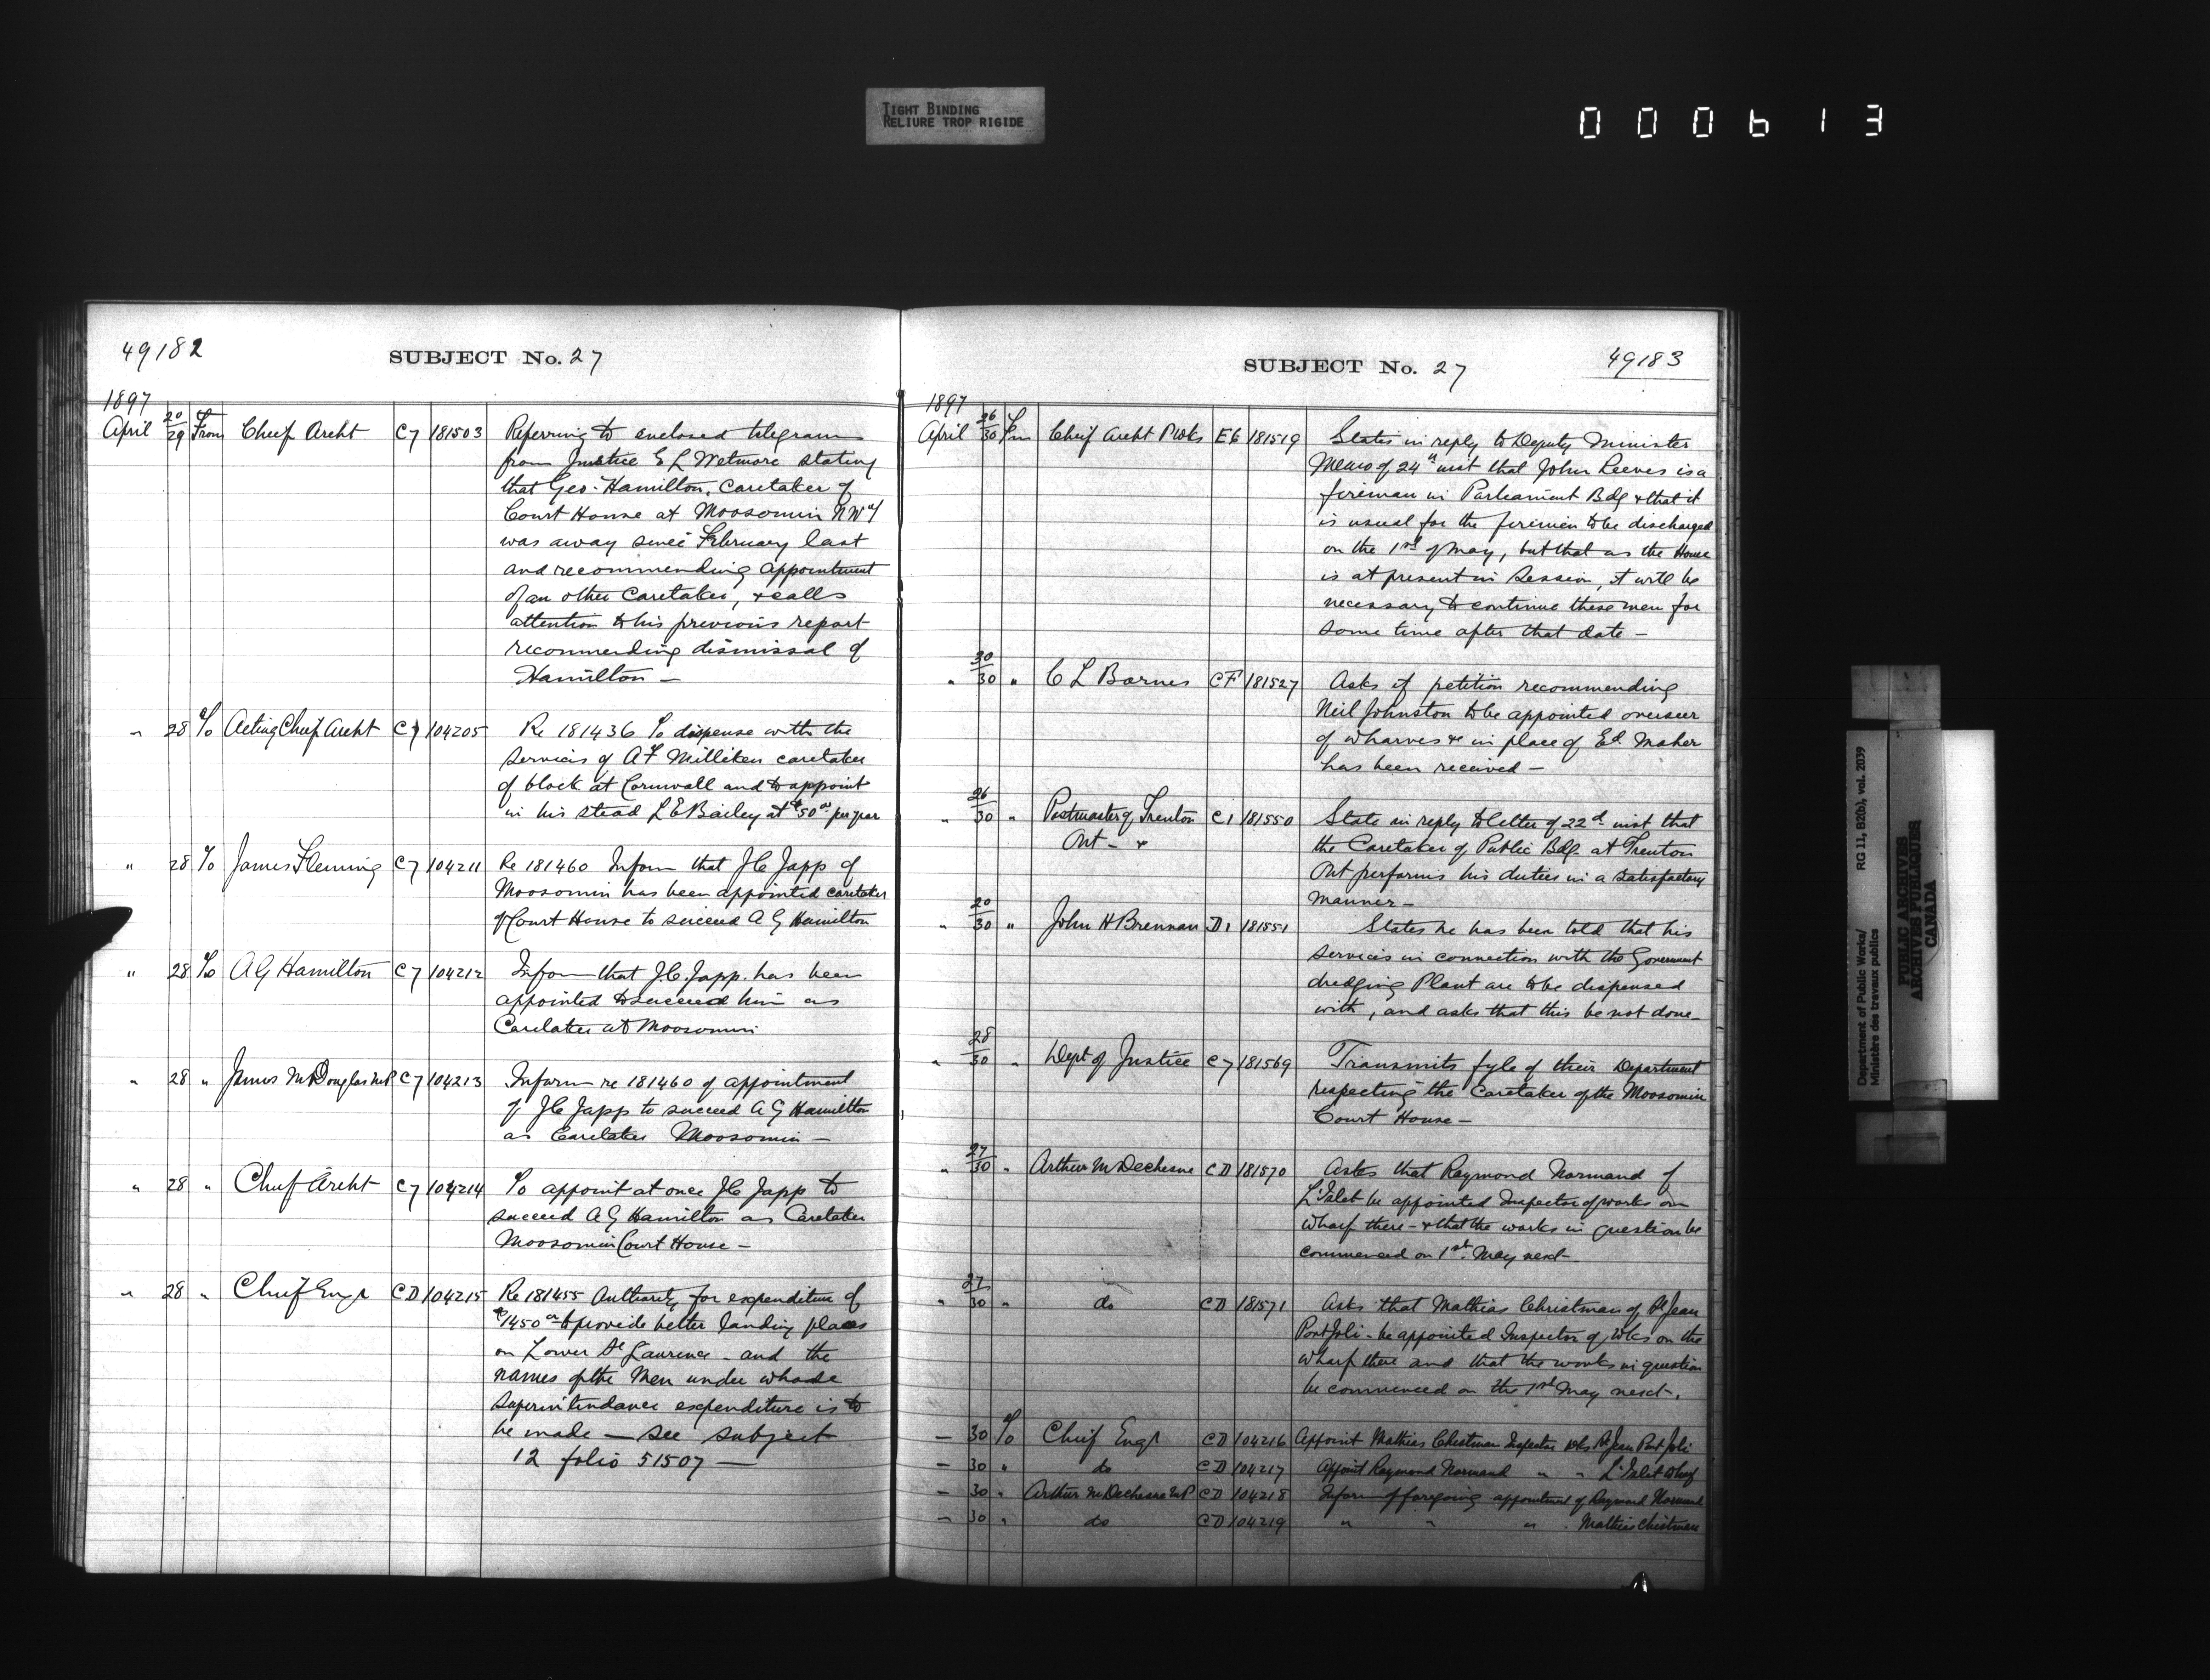 TIGHT BINDING
RELIURE TROP RIGIDE
000613
49182
SUBJECT No. 27
1897
April 20/29 From Chief Archt C7 181503 Referring to enclosed telegram
from Justice E L Wetmore stating
that Geo. Hamilton, Caretaker of
Court House at Moosomin NWT
was away since February last
and recommending appointment
of an other Caretaker, & calls
attention to his previous report
recommending dismissal of
Hamilton —
" 28 To Acting Chief Archt C7 104205 Re 181436 To dispense with the
services of A F Milliken caretaker
of block at Cornwall and to appoint
in his stead L E Bailey at $50 00 per year
" 28 To James Fleming C7 104211 Re 181460 Inform that J C Japp of
Moosomin has been appointed caretaker
of Court House to succeed A G Hamilton
" 28 To A G Hamilton C7 104212 Inform that J.C. Japp has been
appointed to succeed him as
Caretaker at Moosomin
" 28 " James McDouglas MP C7 104213 Inform re 181460 of appointment
of J C Japp to succeed A G Hamilton
as Caretaker Moosomin —
" 28 " Chief Archt C7 104214 To appoint at once J C Japp to
succeed A G Hamilton as Caretaker
Moosomin Court House —
" 28 " Chief Engr CD 104215 Re 181455 Authority for expenditure of
$1450 00 to provide better landing places
on Lower St Laurence - and the
names of the Men under whose
Superintendance expenditure is to
be made — see subject
12 folio 51507 —
SUBJECT No. 27
49183
1897
April 26/30 Fm Chief Archt PWks E6 181519 States in reply to Deputy Minister
Memo of 24th inst that John Reeves is a
fireman in Parliament Bdg & that it
is usual for the firemen to be discharged
on the 1st of May, but that as the House
is at present in Session, it will be
necessary to continue these men for
some time after that date —
" 30/30 " C L Barnes CF 181527 Asks if petition recommending
Neil Johnston to be appointed overseer
of wharves &c in place of Ed. Maher
has been received —
" 26/30 " Postmaster of Trenton C1 181550 State in reply to letter of 22d inst that
Ont - & the Caretaker of Public Bdg. at Trenton
Ont performs his duties in a satisfactory
manner —
" 20/30 " John H Brennan D1 181551 States he has been told that his
services in connection with the Government
dredging Plant are to be dispensed
with, and asks that this be not done —
" 28/30 " Dept of Justice C7 181569 Transmits fyle of their Department
respecting the Caretaker of the Moosomin
Court House —
" 27/30 " Arthur M Dechesne CD 181570 Asks that Raymond Normand of
L'Islet be appointed Inspector of works on
wharf there - & that the works in question be
commenced on 1st May next —
" 27/30 " do CD 181571 Asks that Mathias Christman of St Jean
Port Joli - be appointed Inspector of wks on the
wharf there and that the works in question
be commenced on the 1st May next.
— 30 To Chief Engr CD 104216 Appoint Mathias Christman Inspector wks St Jean Port Joli
— 30 " do CD 104217 Appoint Raymond Normand " " L'Islet Wharf
— 30 " Arthur M Dechesne MP CD 104218 Inform of foregoing appointment of Raymond Normand
— 30 " do CD 104219 " " " Mathias Christman
Department of Public Works/ RG 11, B2(b), vol. 2039
Ministère des travaux publics
PUBLIC ARCHIVES
ARCHIVES PUBLIQUES
CANADA